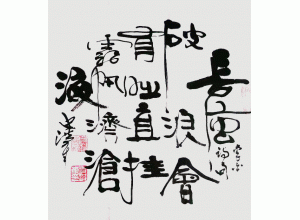 長風
破浪會
有時直挂
雲帆濟滄
海